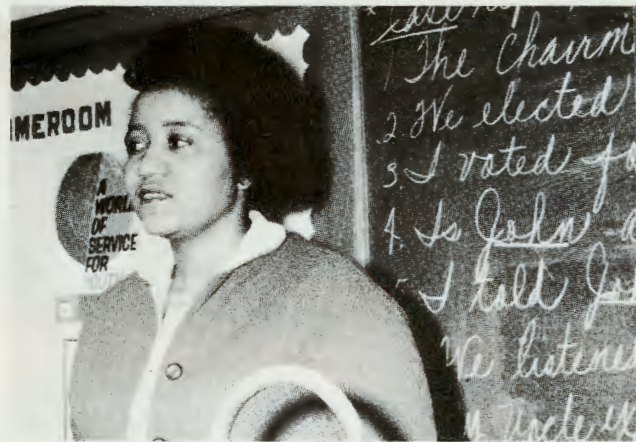 MEROOM
A
WORLD
OF
SERVICE
FOR
YOUTH
1 The Chairm
2. We elected
3. I voted fo
4. Is John a
5. I told Jo
We listene
y uncle